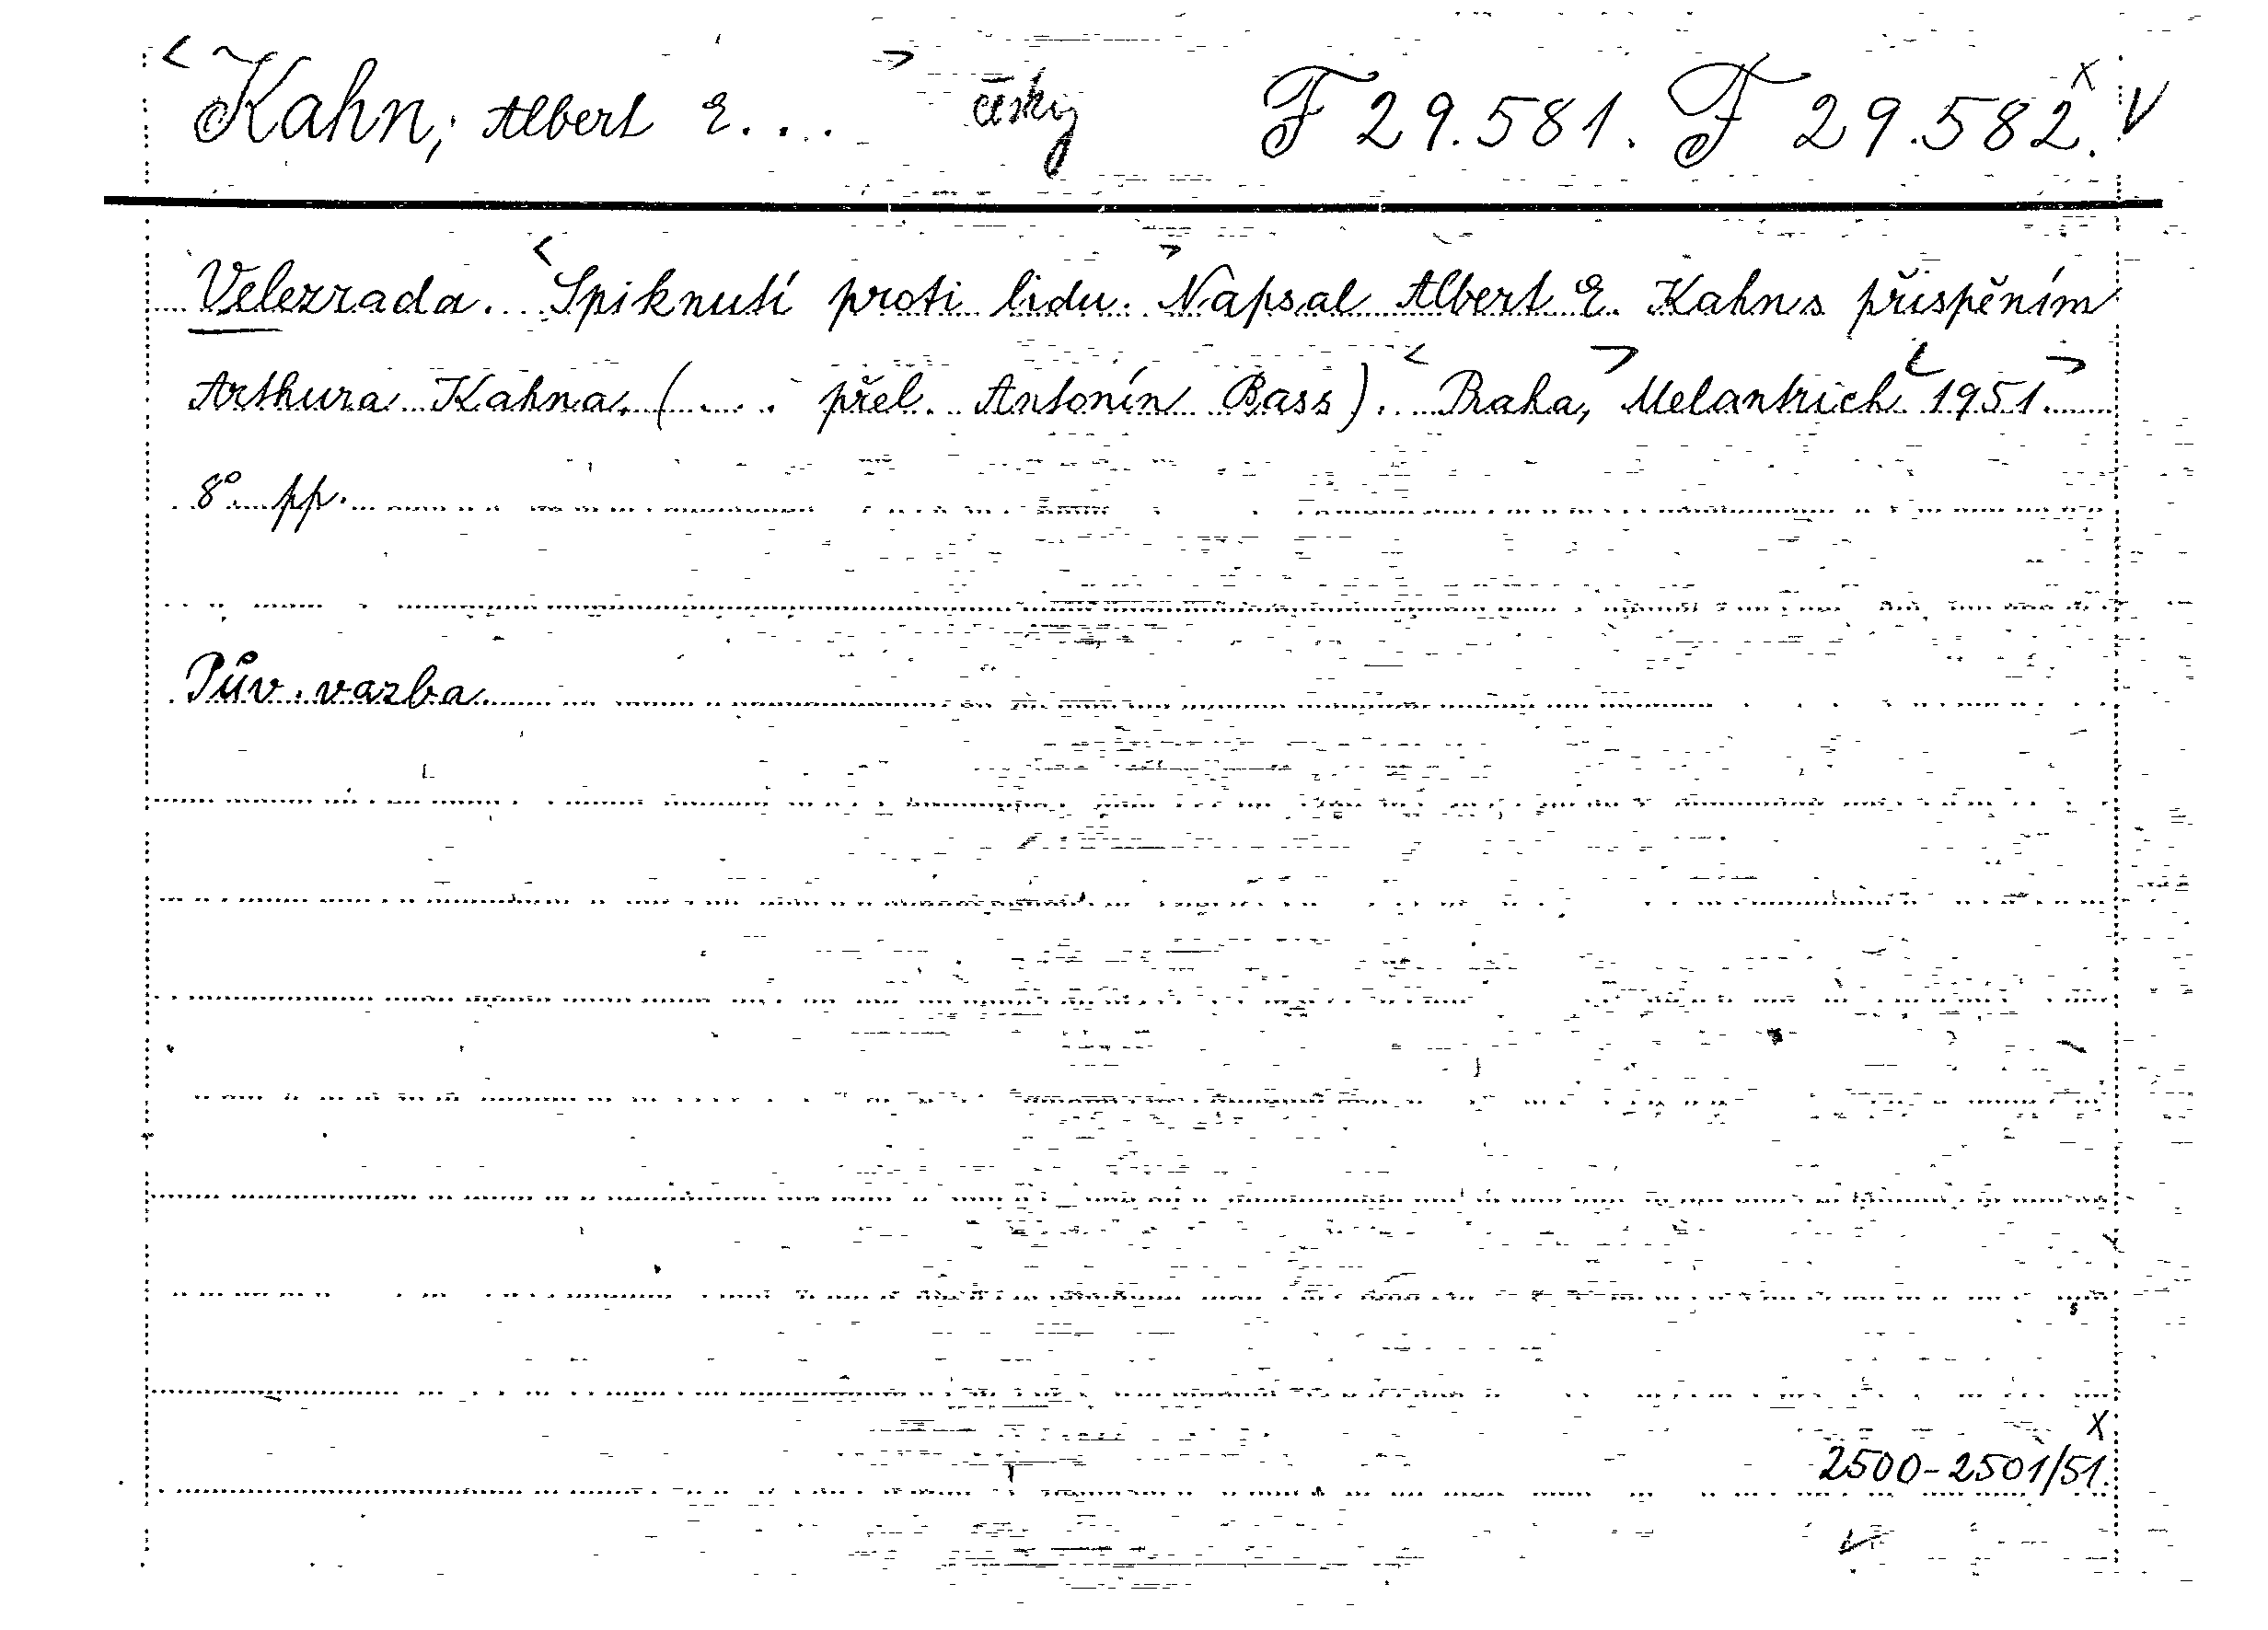 Kahn, Albert E... česky F 29.581. F 29.582.x V
Velezrada. Spiknutí proti lidu. Napsal Albert E. Kahn s přispěním
Arthura Kahna. (... přel. Antonín Bass). Praha, Melantrich 1951.
8°. pp.
Pův. vazba.
x
2500-2501/51.